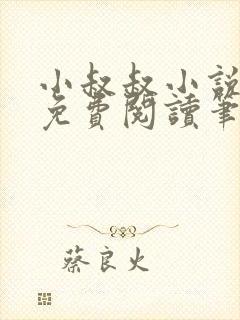 小叔叔小說
免費閱讀筆
蔡良火